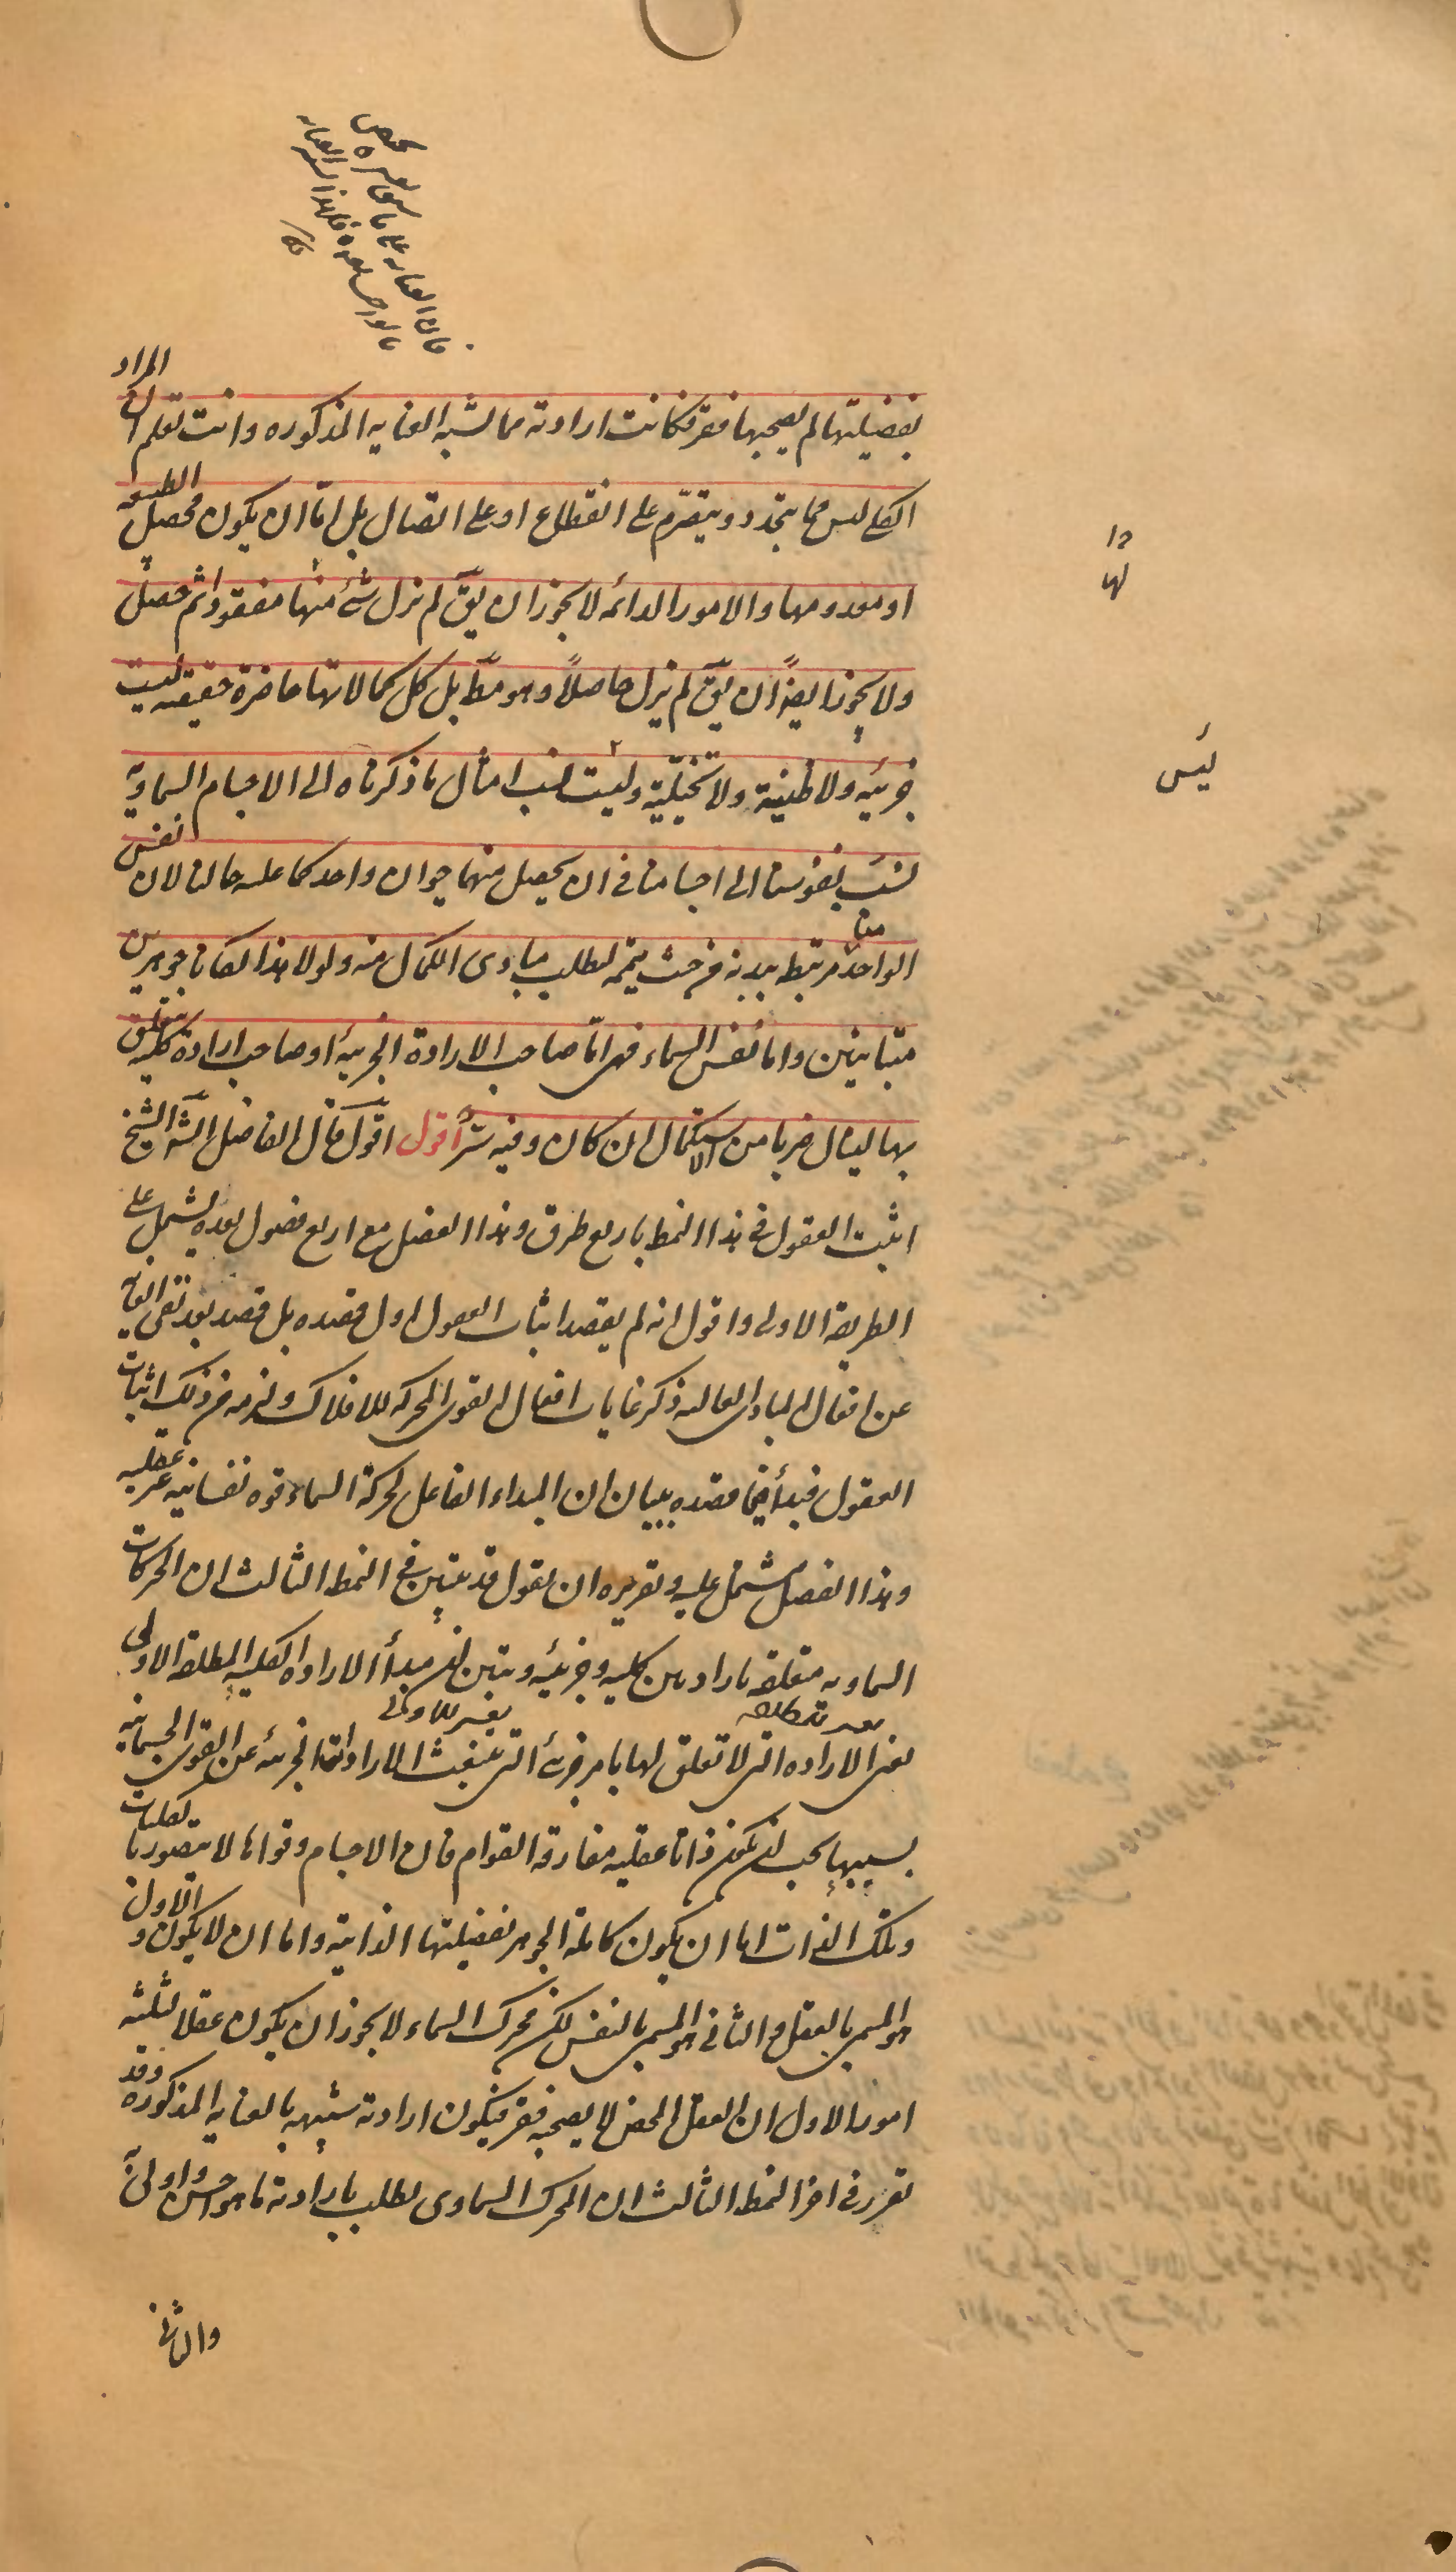 بفضيلتها لم يصحبها فقر فكانت ارادته مما يشبه العنايه المذكوره وانت تعلم ان المراد
الكلي ليس مما يتجدد ويتصرم على انقطاع او على اتصال بل اما ان يكون محصل الطبيعه
او معدومها والامور الدائمه لا يجوز ان يق لم يزل شئ منها مفقودا ثم حصل
ولا يجوز ايضاً ان يق لم يزل حاصلاً وهو مط بل كل كمالاتها حاضرة حقيقه ليست
جزئيه ولا ظنية ولا تخيليّة وليست نسب امثال ما ذكرناه الى الاجسام السماوية
نسب نفوسنا الى اجسامنا في ان يحصل منهما حيوان واحد كما عليه حالنا لان نفس
الواحد منا مرتبط ببدنه من حيث يتمه لطلب مبادى الكمال منه ولولا هذا لكانا جوهرين
متباينين واما نفس السماء فهي اما صاحب الارادة الجزئية او صاحب ارادة كلية تتعلق
بها لينال ضربا من الاستكمال ان كان وفيه سرٌّ اقول اقول قال الفاضل الش الشيخ
اثبت العقول في هذا النمط باربع طرق وهذا الفصل مع اربع فصول بعده يشتمل على
الطريقة الاولى واقول انه لم يقصد اثبات العقول اول قصده بل قصد بعد نفى الغاية
عن افعال المبادى العاليه ذكر غايات افعال القوى المحركه للافلاك ولزمه من ذلك اثبات
العقول فبدأ فيما قصده ببيان ان المبداء الفاعل لحركة السماء قوه نفسانيه غير عقليه
وهذا الفصل يشتمل عليه وتقريره ان يقول قد تبين في النمط الثالث ان الحركات
السماويه متعلقه بارادتين كليه وجزئيه وتبين ان مبدأ الارادة الكليه المطلقة الاولى
يعنى الاراده التى لا تعلق لها بامر جزئى التى تنبعث الارادات الجزئيه عن القوى الجسمانيه
بسببها يجب ان يكون ذاتا عقليه مفارقة القوام فان الاجسام وقواها لا يتصور بالكليات
وتلك الذات اما ان يكون كاملة الجوهر بفضيلتها الذاتية واما ان لا يكون والاول
هو المسمى بالعقل والثانى هو المسمى بالنفس لكن محرك السماء لا يجوز ان يكون عقلا لثلثه
امور الاول ان العقل المحض لا يصحبه فقر فيكون ارادته شبيهه بالعنايه المذكوره وقد
تقرر في اخر النمط الثالث ان المحرك السماوى يطلب بارادته ما هو احسن واولى
والثانى
ليس